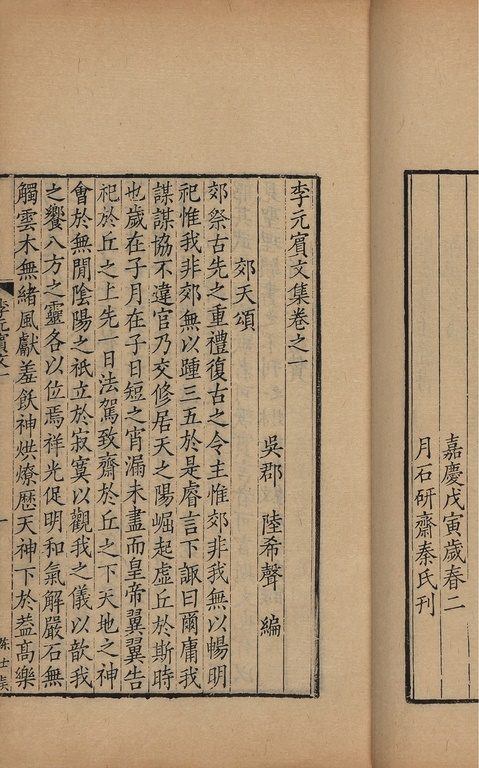 嘉慶戊寅歲春二
月石研齋秦氏刊
李元賓文集卷之一
吳郡 陸希聲 編
郊天頌
郊祭古先之重禮復古之令主惟郊非我無以暢明
祀惟我非郊無以踵三五於是睿言下諏曰爾庸我
謀謀協不違官乃交修居天之陽崛起虛丘於斯時
也歲在子月在子日短之宵漏未盡而皇帝翼翼告
祀於丘之上先一日法駕致齋於丘之下天地之神
會於無閒陰陽之祇立於寂寞以觀我之儀以歆我
之饗八方之靈各以位焉祥光促明和氣解嚴石無
觸雲木無緒風獻羞飫神烘燎歷天神下於葢高樂
李元賓文一
一